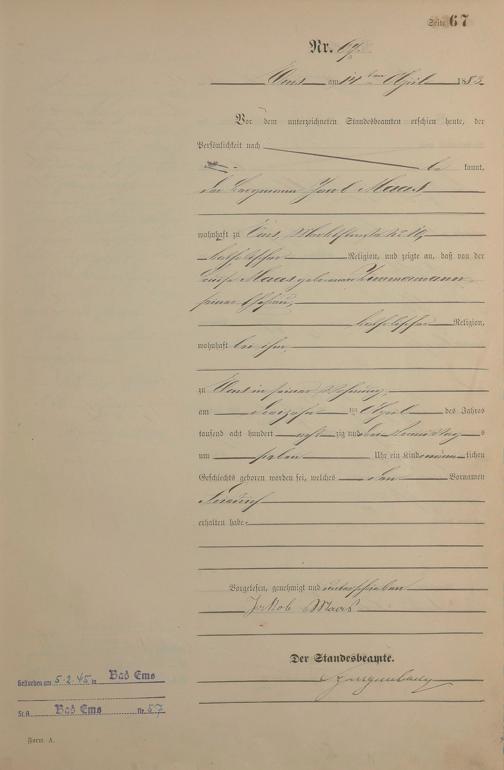 Seite 67
Nr. 67.
Ems am 14ten April 188
Vor dem unterzeichneten Standesbeamten erschien heute, der
Persönlichkeit nach
be kannt,
der Bergmann Jacob Maas,
wohnhaft zu Ems, Marktstraße No 10,
katholischer Religion, und zeigte an, daß von der
Maas geborenen Zimmermann
seiner Ehefrau,
katholischer Religion,
wohnhaft bei ihm,
zu Ems in seiner Wohnung,
am ten April des Jahres
tausend acht hundert acht zig und
um sieben Uhr ein Kind männ lichen
Geschlechts geboren worden sei, welches den Vornamen
erhalten habe.
Vorgelesen, genehmigt und unterschrieben
Jakob Maas
Der Standesbeamte.
Gestorben am 5.2.45 in Bad Ems
St.A. Bad Ems Nr. 57
Form. A.